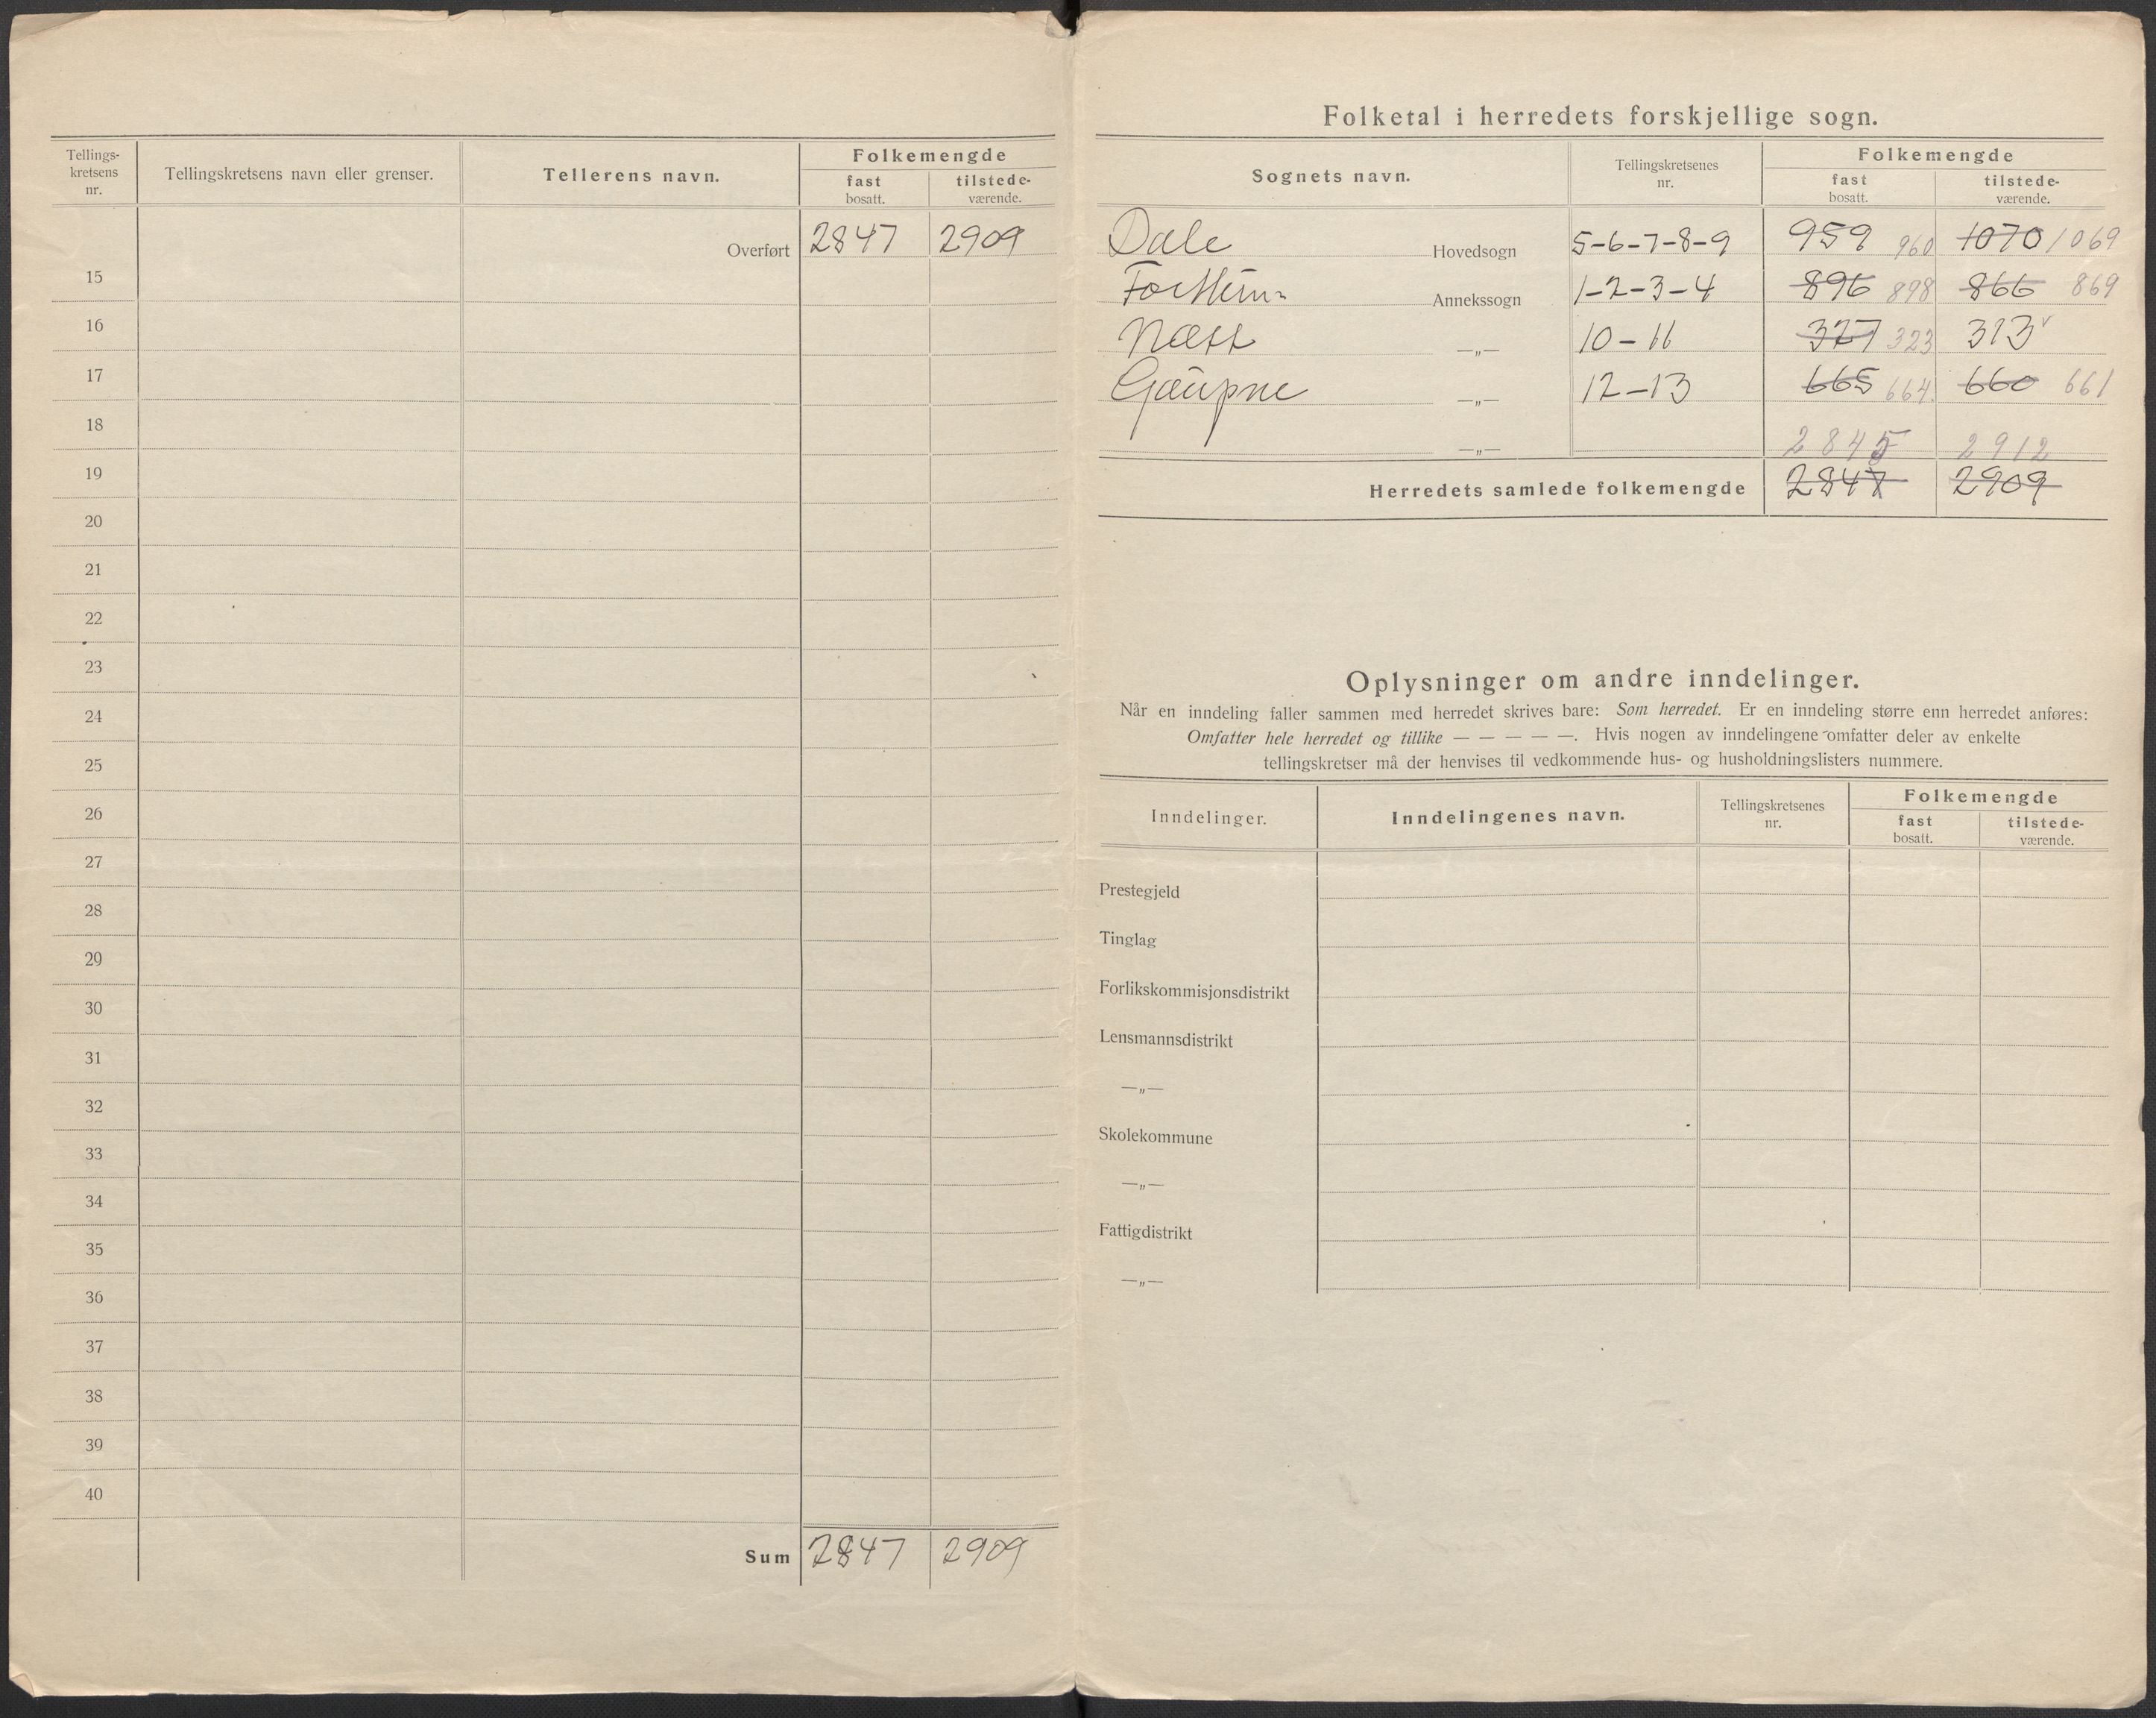 Tellings-
kretsens
nr.
Tellingskretsens navn eller grenser.
Tellerens navn.
Folkemengde
fast
bosatt.
tilstede-
værende.
Overført 2847 2909
15
16
17
18
19
20
21
22
23
24
25
26
27
28
29
30
31
32
33
34
35
36
37
38
39
40
Sum 2847 2909
Folketal i herredets forskjellige sogn.
Sognets navn.
Tellingskretsenes
nr.
Folkemengde
fast
bosatt.
tilstede-
værende.
Dale Hovedsogn 5-6-7-8-9 959 960 1070 1069
Annekssogn 1-2-3-4 896 898 866 869
Næss —„— 10-11 327 323 313 v
Gaupne —„— 12-13 665 664 660 661
—„— 2845 2912
Herredets samlede folkemengde 2847 2909
Oplysninger om andre inndelinger.
Når en inndeling faller sammen med herredet skrives bare: Som herredet. Er en inndeling større enn herredet anføres:
Omfatter hele herredet og tillike — — — — —. Hvis nogen av inndelingene omfatter deler av enkelte
tellingskretser må der henvises til vedkommende hus- og husholdningslisters nummere.
Inndelinger.
Inndelingenes navn.
Tellingskretsenes
nr.
Folkemengde
fast
bosatt.
tilstede-
værende.
Prestegjeld
Tinglag
Forlikskommisjonsdistrikt
Lensmannsdistrikt
—„—
Skolekommune
—„—
Fattigdistrikt
—„—